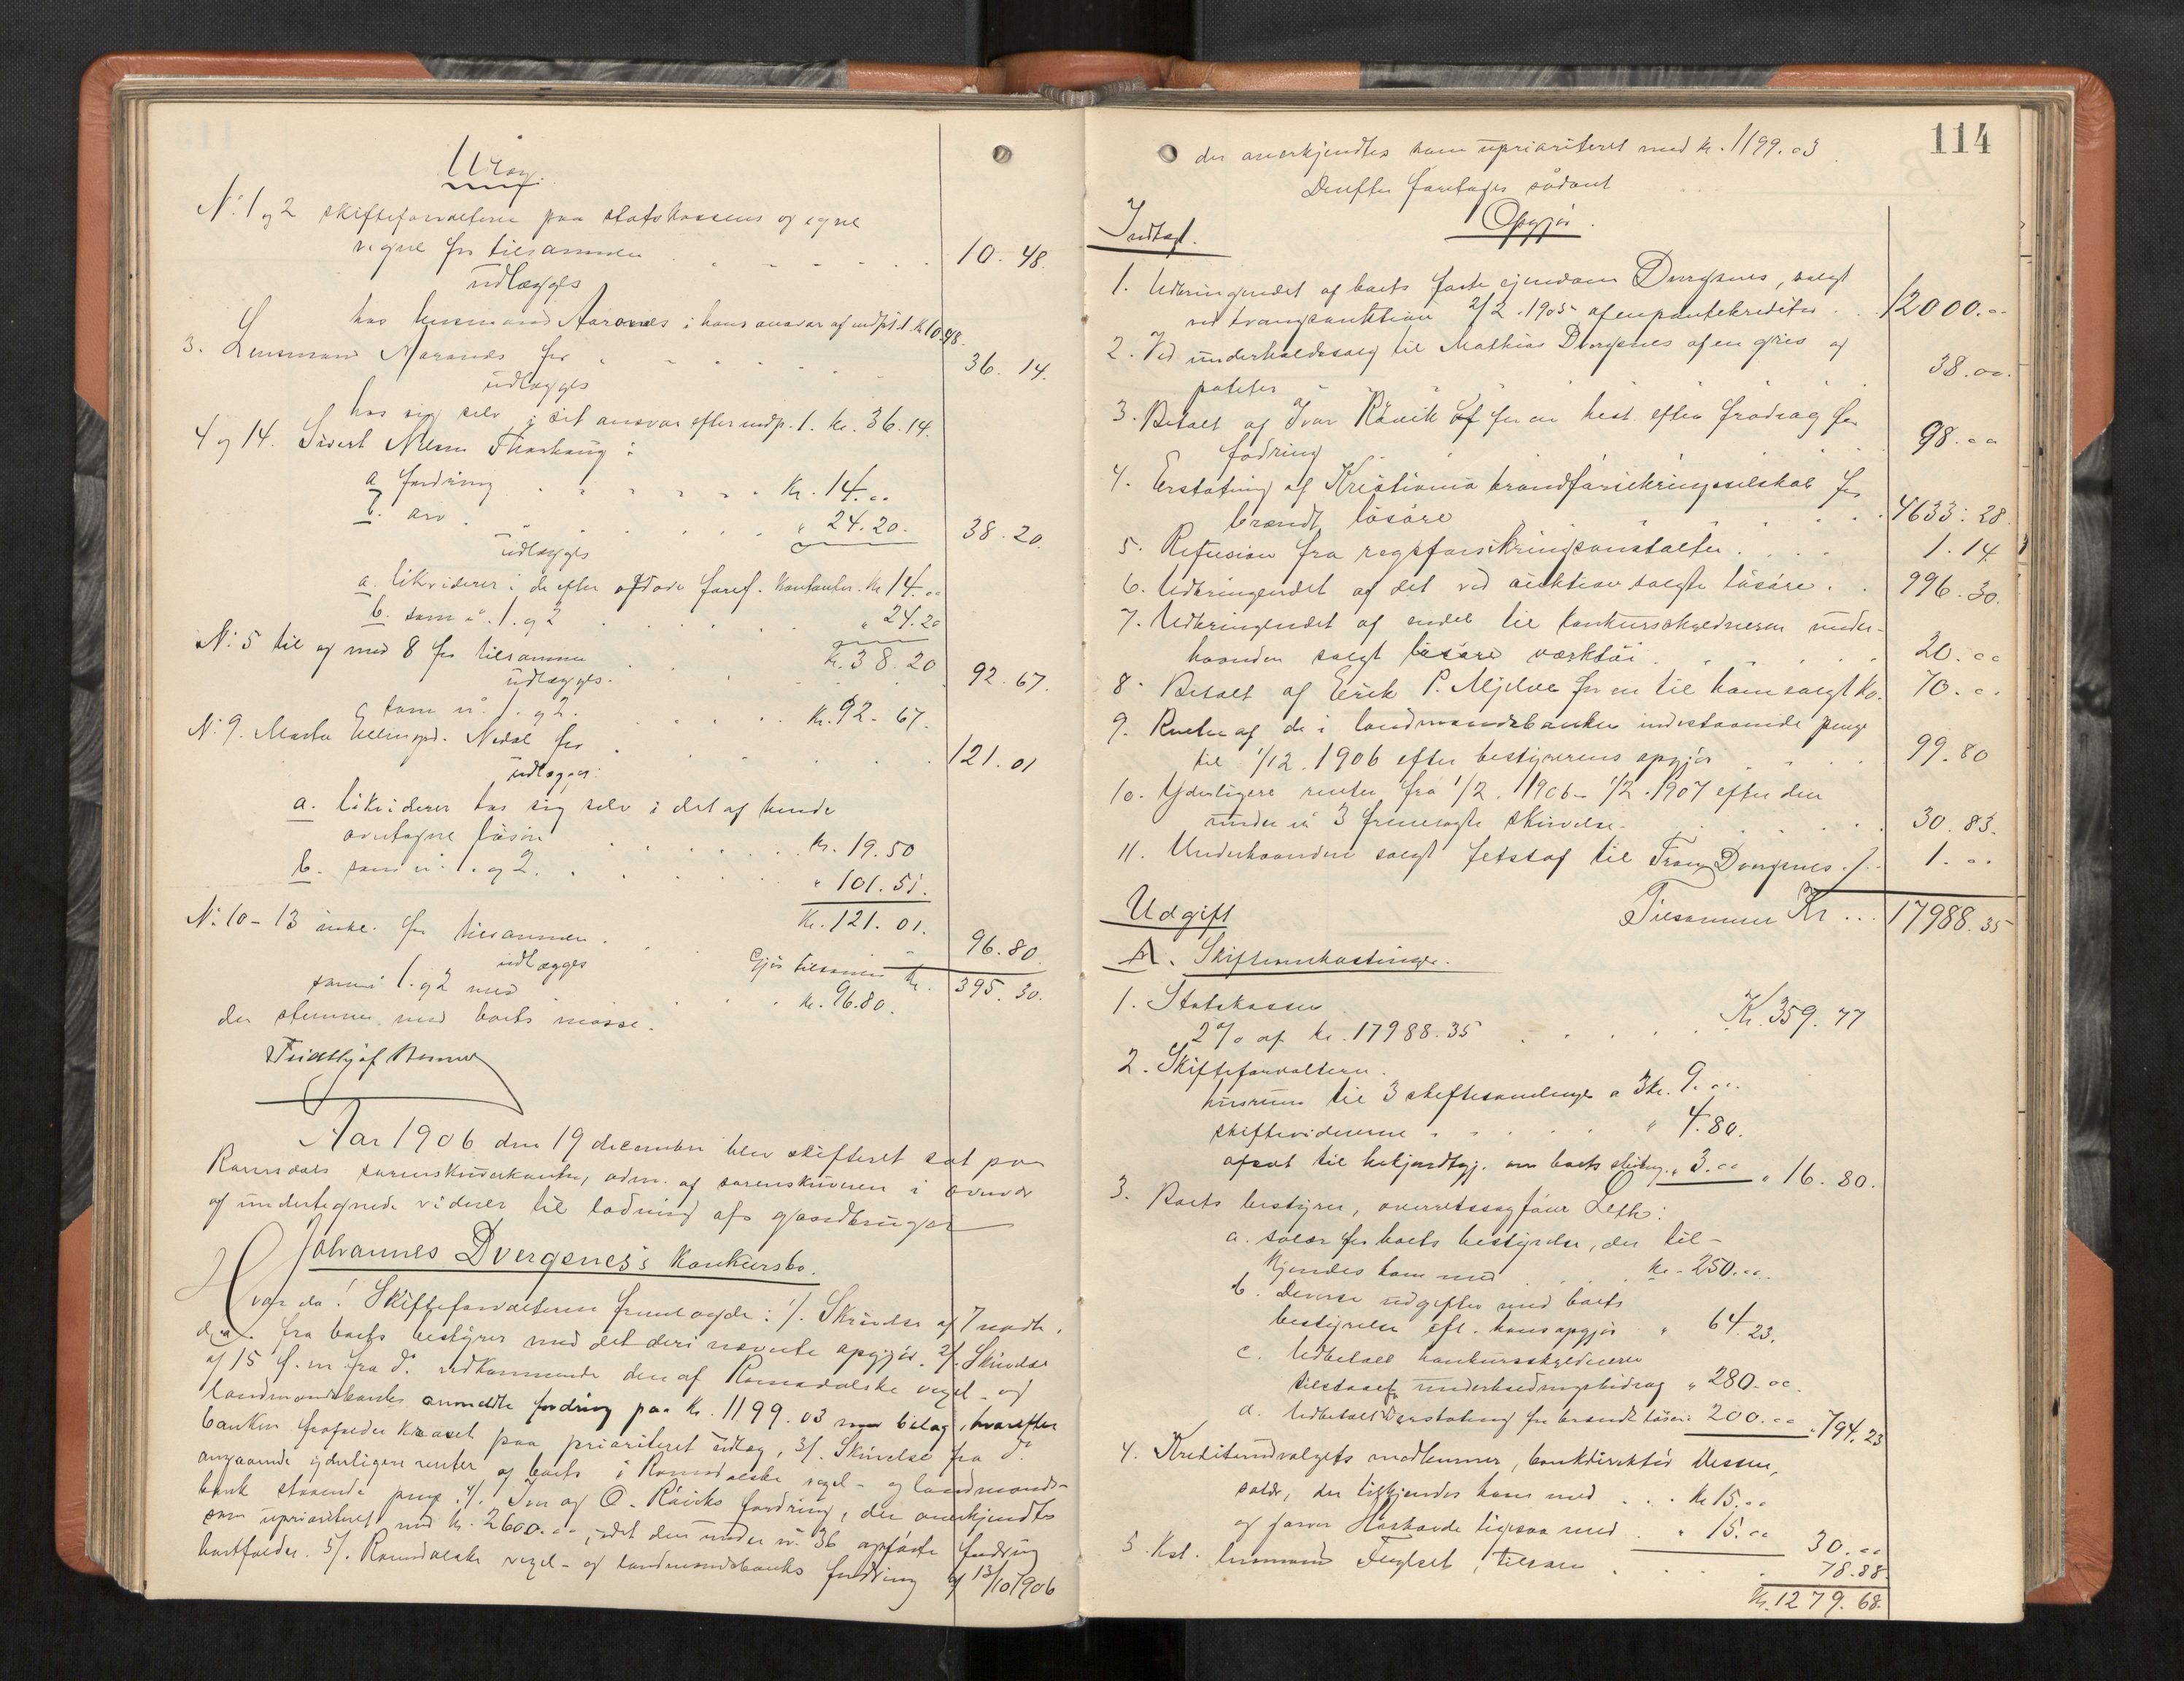 Udlæg.
No: 1 og 2 skifteforvalteren paa statskassens og egne
vegne for tilsammen . . . . . 10. 48.
udlægges
hos lensmand Aarønes i hans ansvar af indpst. 1. K 10.48.
3. Lensmand Aarønes for . . . . . 36. 14.
udlægges
hos sig selv i sit ansvar efter indp. 1. kr. 36.14.
4 og 14. Sivert Nilsen :
a fordring . . . . . Kr. 14. "
b. arv . . . . . " 24. 20. 38. 20.
udlægges
a. likviderer i de efter afdøde foref. kontanter. Kr 14. "
b. som No. 1. og 2 . . . . " 24. 20
Kr. 38. 20
No: 5 til og med 8 for tilsammen . . . 92. 67.
udlægges.
som No. 1. og 2. . . . . Kr. 92. 67.
No: 9. Marta Ellingsd. Nedal for . . . . 121. 01
udlægges:
a. likviderer hos sig selv i det af hende
overtagne løsøre . . . . . Kr. 19. 50
b. som No. 1. og 2. . . . . " 101. 51.
Kr. 121. 01.
No: 10 - 13 inkl. for tilsammen . . . 96. 80.
udlægges Gjør tilsammen Kr. 395. 30.
som i 1. og 2 med . . . . kr. 96. 80.
der stemmer med boets masse.
Aar 1906 den 19 december blev skifteret sat paa
Romsdals sorenskriverkontor, adm. af sorenskriveren i overvær
af undertegnede vidner til ladning af gaardbruger
Johannes Dvergsnes's konkursbo.
Hvor da! Skifteforvalteren fremlagde: 1/. Skrivelse af 7 novbr.
d. a. fra boets bestyrer med det deri nævnte opgjør. 2/. Skrivelse
af 15 f. m. fra do. vedkommende den af Romsdalske vexel- og
landmandsbanks anmeldte fordring paa kr. 1199. 03 med bilag, hvorefter
banken frafalder kravet paa prioriteret udlæg, 3/. Skrivelse fra do.
angaaende yderligere renter af boets i Romsdalske vexel- og landmands-
bank staaende penge. 4/. Iver og O. Råviks fordring, der anerkjendtes
som uprioriteret med kr. 2600. ", idet den under no. 36 opførte fordring
bortfalder. 5/. Romsdalske vexel- og landmandsbanks fordring af 13/10 1906
114
der anerkjendtes som uprioriteret med kr. 1199. 03.
Derefter foretages sådant
Opgjør.
Indtægt.
1. Udbringendet af boets faste ejendom Dvergsnes, solgt
ved tvangsauktion 2/2. 1905 af en pantekreditor . . 12000. "
2. Ved underhaandssalg til Mathias Dvergsnes af en gris og
poteter . . . . . 38. "
3. Betalt af Ivar Råvik for en hest efter fradrag for
fodring . . . . . 98. "
4. Erstatning af Kristiania brandforsikringsselskab for
brændt løsøre . . . . . 4633. 28.
5. Refusion fra rigsforsikringsanstalten . . . . 1. 14
6. Udbringendet af det ved auktion solgte løsøre . . 996. 30.
7. Udbringendet af endel til konkursskyldneren under-
haanden solgt løsøre værktøi . . . . . 20. "
8. Betalt af Erik P. Mjelve for en til ham solgt ko. 70. "
9. Renter af de i landmandsbanken indestaaende penge
til 1/12. 1906 efter bestyrerens opgjør . . . 99. 80
10. Yderligere renter fra 1/2. 1906 - 1/2. 1907 efter den
under No 3 fremlagte skrivelse . . . . . 30. 83.
11. Underhaanden solgt til Dvergsnes . . 1. "
Tilsammen Kr . . . 17988. 35
Udgift
A. Skifteomkostninger.
1. Statskassen
2% af kr. 17988. 35 . . . . . Kr. 359. 77
2. Skifteforvalteren.
husrum til 3 skiftesamlinger a 3 kr. 9. "
skiftevidnerne . . . . . " 4. 80.
afsat til bekjendtgj. om boets slutning. " 3. " " 16. 80.
3. Boets bestyrer, overretssagfører Leth:
a. salær for boets bestyrelse, der til-
kjendes ham med . . . kr. 250. "
b. Diverse udgifter med boets
bestyrelse efl. hans opgjør " 64. 23.
c. Udbetalt konkursskyldneren
tilstaaet underholdningsbidrag " 280. "
d. Udbetalt erstatning for brændt løsøre: 200. " " 794. 23
4. Kreditorudvalgets medlemmer, bankdirektør Dessen,
salær, der tilkjendes ham med . . . Kr 15. "
og ligesaa med . . " 15. " 30. "
5. Kst. lensmand Fuglset, tilsam . . . . 78. 88
Kr. 1279. 68.